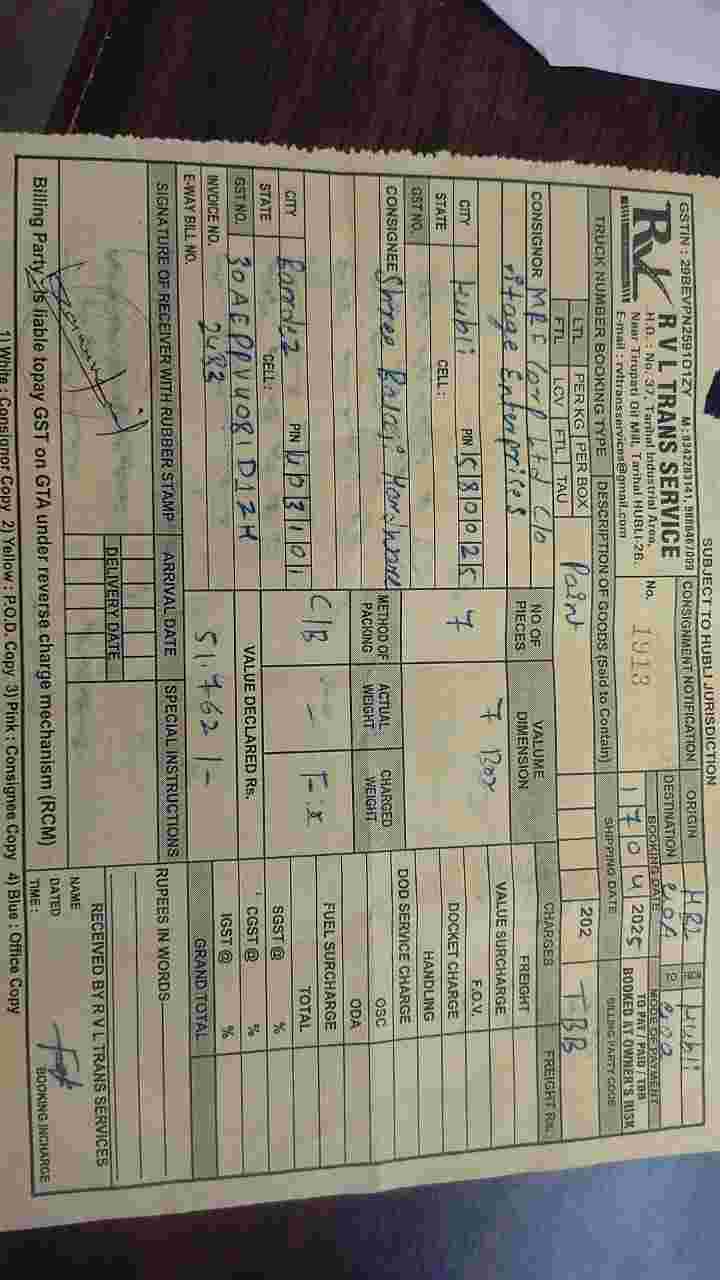 SUBJECT TO HUBLI JURISDICTION
GSTIN : 29BEVPN2591D1ZY M : 9342283141, 9886467009
RVL
R V L TRANS SERVICE
H.O. : No. 37, Tarihal Industrial Area,
Near Tirupati Oil Mill, Tarihal HUBLI-26.
E-mail : rvltransservices@gmail.com
CONSIGNMENT NOTIFICATION
No. 1913
ORIGIN HBL FROM Hubli
DESTINATION GOA TO Goa
BOOKING DATE
17 04 2025
MODE OF PAYMENT
TO PAY / PAID / TBB
BOOKED AT OWNER'S RISK
TRUCK NUMBER BOOKING TYPE
LTL PER KG PER BOX
FTL LCV FTL TAU
DESCRIPTION OF GOODS (Said to Contain)
Paint
SHIPPING DATE
202
BILLING PARTY CODE
TBB
CONSIGNOR MRF Corp Ltd C/o
Vitage Enterprises
CITY Hubli PIN 580025
STATE CELL :
GST NO.
NO OF PIECES
7
VALUME DIMENSION
7 Box
CONSIGNEE Shree Balaji
CITY Bardez PIN 403101
STATE CELL :
GST NO. 30AEPPV4081D1ZH
INVOICE NO. 2483
E-WAY BILL NO.
METHOD OF PACKING
C/B
ACTUAL WEIGHT
-
CHARGED WEIGHT
VALUE DECLARED Rs.
51,762/-
CHARGES FREIGHT Rs.
FREIGHT
VALUE SURCHARGE
F.O.V.
DOCKET CHARGE
HANDLING
DOD SERVICE CHARGE
OSC
ODA
FUEL SURCHARGE
TOTAL
SGST @ %
CGST @ %
IGST @ %
GRAND TOTAL
SIGNATURE OF RECEIVER WITH RUBBER STAMP
ARRIVAL DATE
DELIVERY DATE
SPECIAL INSTRUCTIONS
RUPEES IN WORDS
RECEIVED BY R V L TRANS SERVICES
NAME
DATED
TIME :
BOOKING INCHARGE
Billing Party is liable topay GST on GTA under reverse charge mechanism (RCM)
1) White : Consignor Copy 2) Yellow : P.O.D. Copy 3) Pink : Consignee Copy 4) Blue : Office Copy